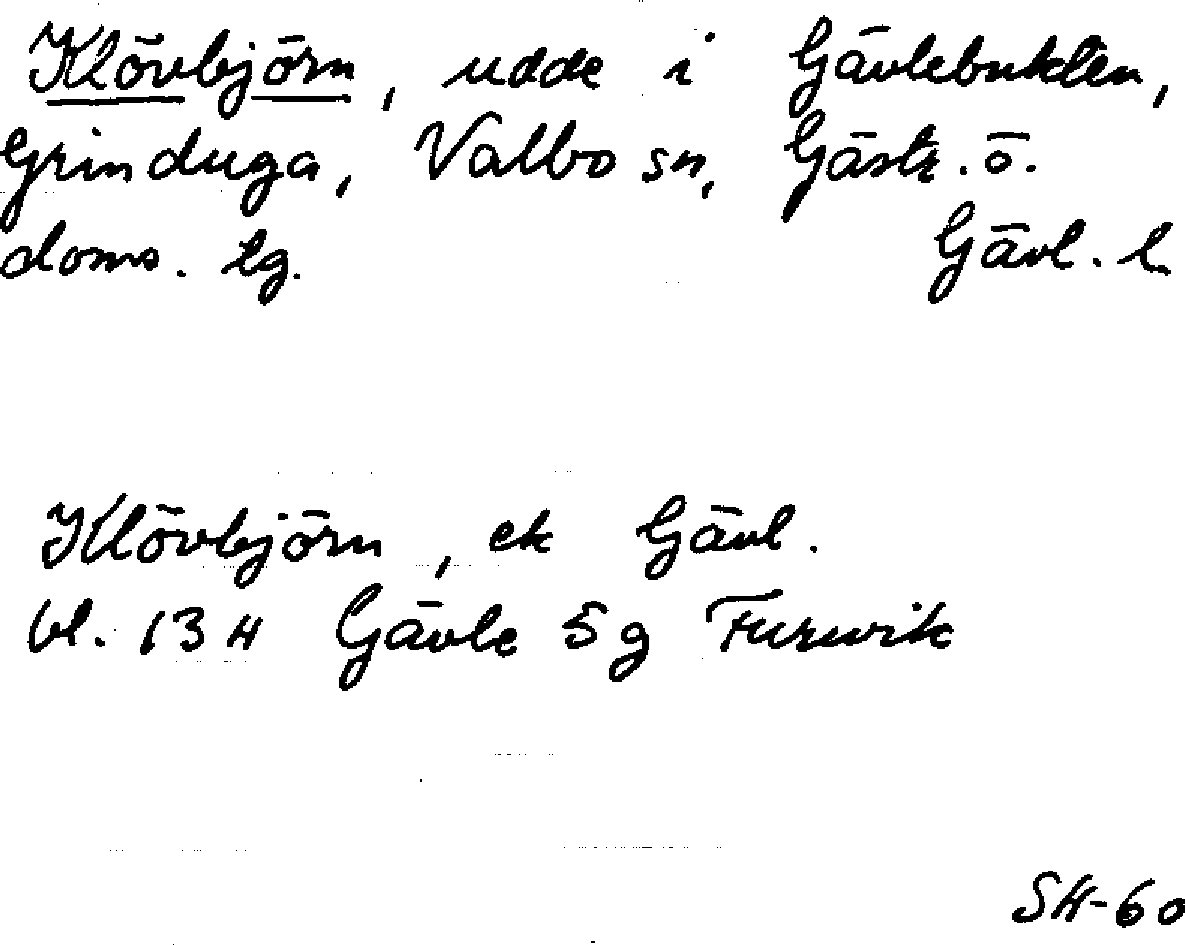 Klövbjörn, udde i Gävlebukten,
Grinduga, Valbo sn, Gästr. ö.
doms. tg. Gävl. l.
Klövbjörn, ek Gävl.
bl. 13 H Gävle 5g Furuvik
SH-60